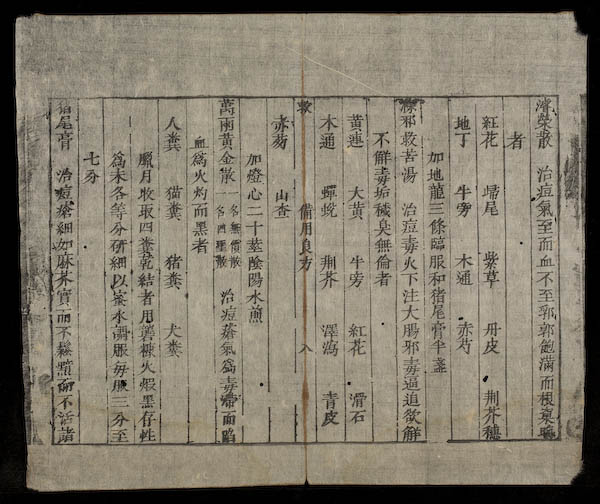 濟榮散　治痘氣至而血不至郭郭飽滿而根窠
者
紅花　歸尾　紫草　丹皮　荆芥穗
地丁　牛旁　木通　赤芍
加地龍三條臨服和猪尾膏半盞
滌邪救苦湯　治痘毒火下注大腸邪毒逼迫欲解
不鮮毒垢穢臭無倫者
黄連　大黄　牛旁　紅花　滑石
木通　蟬蛻　荆芥　澤瀉　青皮
救　備用良方　八
赤芍　山查
加燈心二十莖陰陽水煎
萬兩黄金散　一名無價散　一名四糞散　治痘蒼氣爲毒滯而䧟
血爲火灼而黑者
人糞　猫糞　猪糞　犬糞
臘月收取四糞乾結者用礱糠火煅黑存性
爲末各等分研細以蜜水調服每服三分至
七分
猪尾膏　治痘蒼細如麻芥實而不鬆黯而不活諸